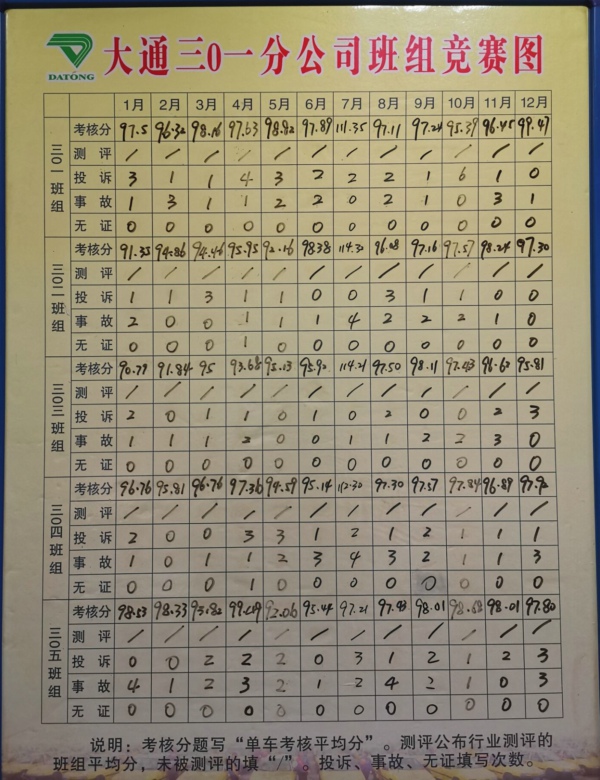 DATONG
大通三0一分公司班组竞赛图
1月 2月 3月 4月 5月 6月 7月 8月 9月 10月 11月 12月
三0一班组
考核分 97.5 96.32 98.16 97.63 98.82 97.89 111.35 97.11 97.24 95.39 96.45 99.47
测评 / / / / / / / / / / / /
投诉 3 1 1 4 3 2 2 2 1 6 1 0
事故 1 3 1 1 2 2 0 2 1 0 3 1
无证 0 0 0 0 0 0 0 0 0 0 0 0
三0二班组
考核分 91.35 94.86 94.46 95.95 92.16 98.38 114.32 96.08 97.16 97.57 98.24 97.30
测评 / / / / / / / / / / / /
投诉 1 1 3 1 1 0 0 3 1 1 0 0
事故 2 0 0 1 1 1 4 2 2 2 1 0
无证 0 0 0 1 0 0 0 0 0 0 0 0
三0三班组
考核分 90.79 91.84 95 93.68 95.13 95.92 114.21 97.50 98.11 97.43 96.62 95.81
测评 / / / / / / / / / / / /
投诉 2 0 1 1 0 1 0 2 0 0 2 3
事故 1 1 1 2 0 0 1 1 2 2 3 0
无证 0 0 0 0 0 0 0 0 0 0 0 0
三0四班组
考核分 96.76 95.81 96.76 97.36 94.59 95.14 112.30 97.30 97.57 97.84 96.89 97.92
测评 / / / / / / / / / / / /
投诉 2 0 0 3 3 1 2 1 2 1 1 1
事故 1 0 1 1 2 3 4 3 2 1 1 3
无证 0 0 0 1 0 0 0 0 0 0 0 0
三0五班组
考核分 98.53 98.33 93.82 92.06 95.44 97.21 97.93 98.01 98.68 98.01 97.80
测评 / / / / / / / / / / / /
投诉 0 0 2 2 2 0 3 1 2 1 2 3
事故 4 1 2 3 2 1 2 4 2 1 0 3
无证 0 0 0 0 0 0 0 0 0 0 0 0
说明：考核分题写“单车考核平均分”。测评公布行业测评的
班组平均分，未被测评的填“/”。投诉、事故、无证填写次数。